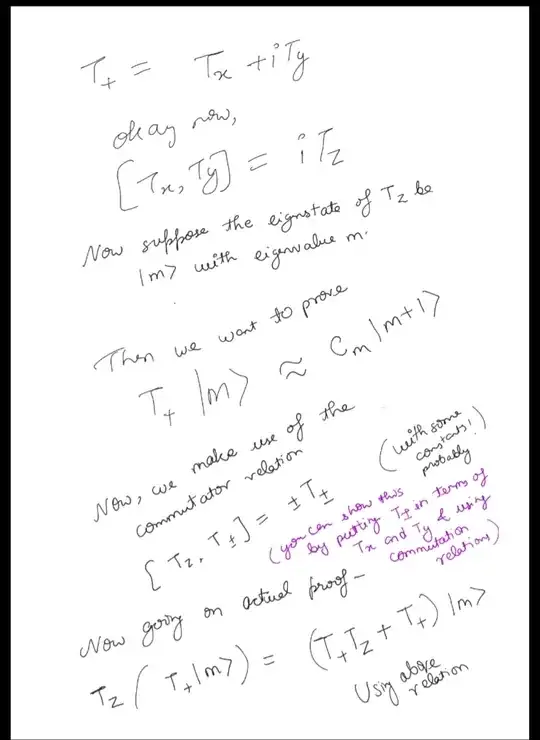 T₊ = Tx + iTy
okay now,
[Tx, Ty] = iTz
Now suppose the eigenstate of Tz be
|m> with eigenvalue m.
Then we want to prove
T₊ |m> ≈ Cm |m+1>
(with some
constants!
probably)
Now, we make use of the
commutator relation
[Tz, T±] = ± T±
(you can show this
by putting T± in terms of
Tx and Ty & using
commutation
relations)
Now going on actual proof –
Tz ( T₊|m>) = (T₊Tz + T₊) |m>
Using above
relation